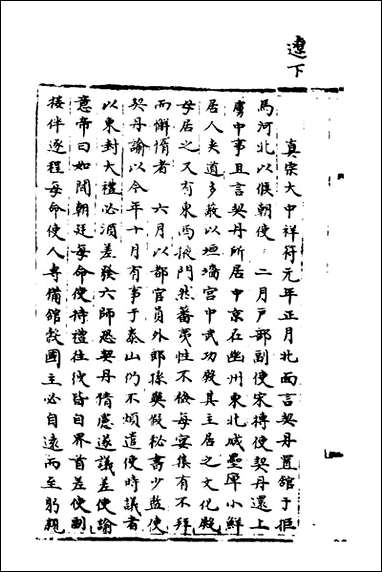 遼下
真宗大中祥符元年正月北面言契丹置舘于拒
馬河北以候朝使 二月戸部副使宋摶使契丹還上
虜中事且言契丹所居中京在幽州東北城壘卑小鮮
居人夹道多蔽以垣墻宫中武功殿其主居之文化殿
母居之又有東西掖門然蕃夷性不儉每宴集有不拜
而懈惰者 六月以都官員外郎孫奭假秘書少監使
契丹諭以今年十月有事于泰山仍不煩遣使時議者
以東封大禮必湏差發六師恐契丹猜慮遂議差使諭
意帝曰如聞朝廷每命使持禮往彼皆自界首差使副
接伴逐程每命使人専備舘設國主必自遠而至躬親